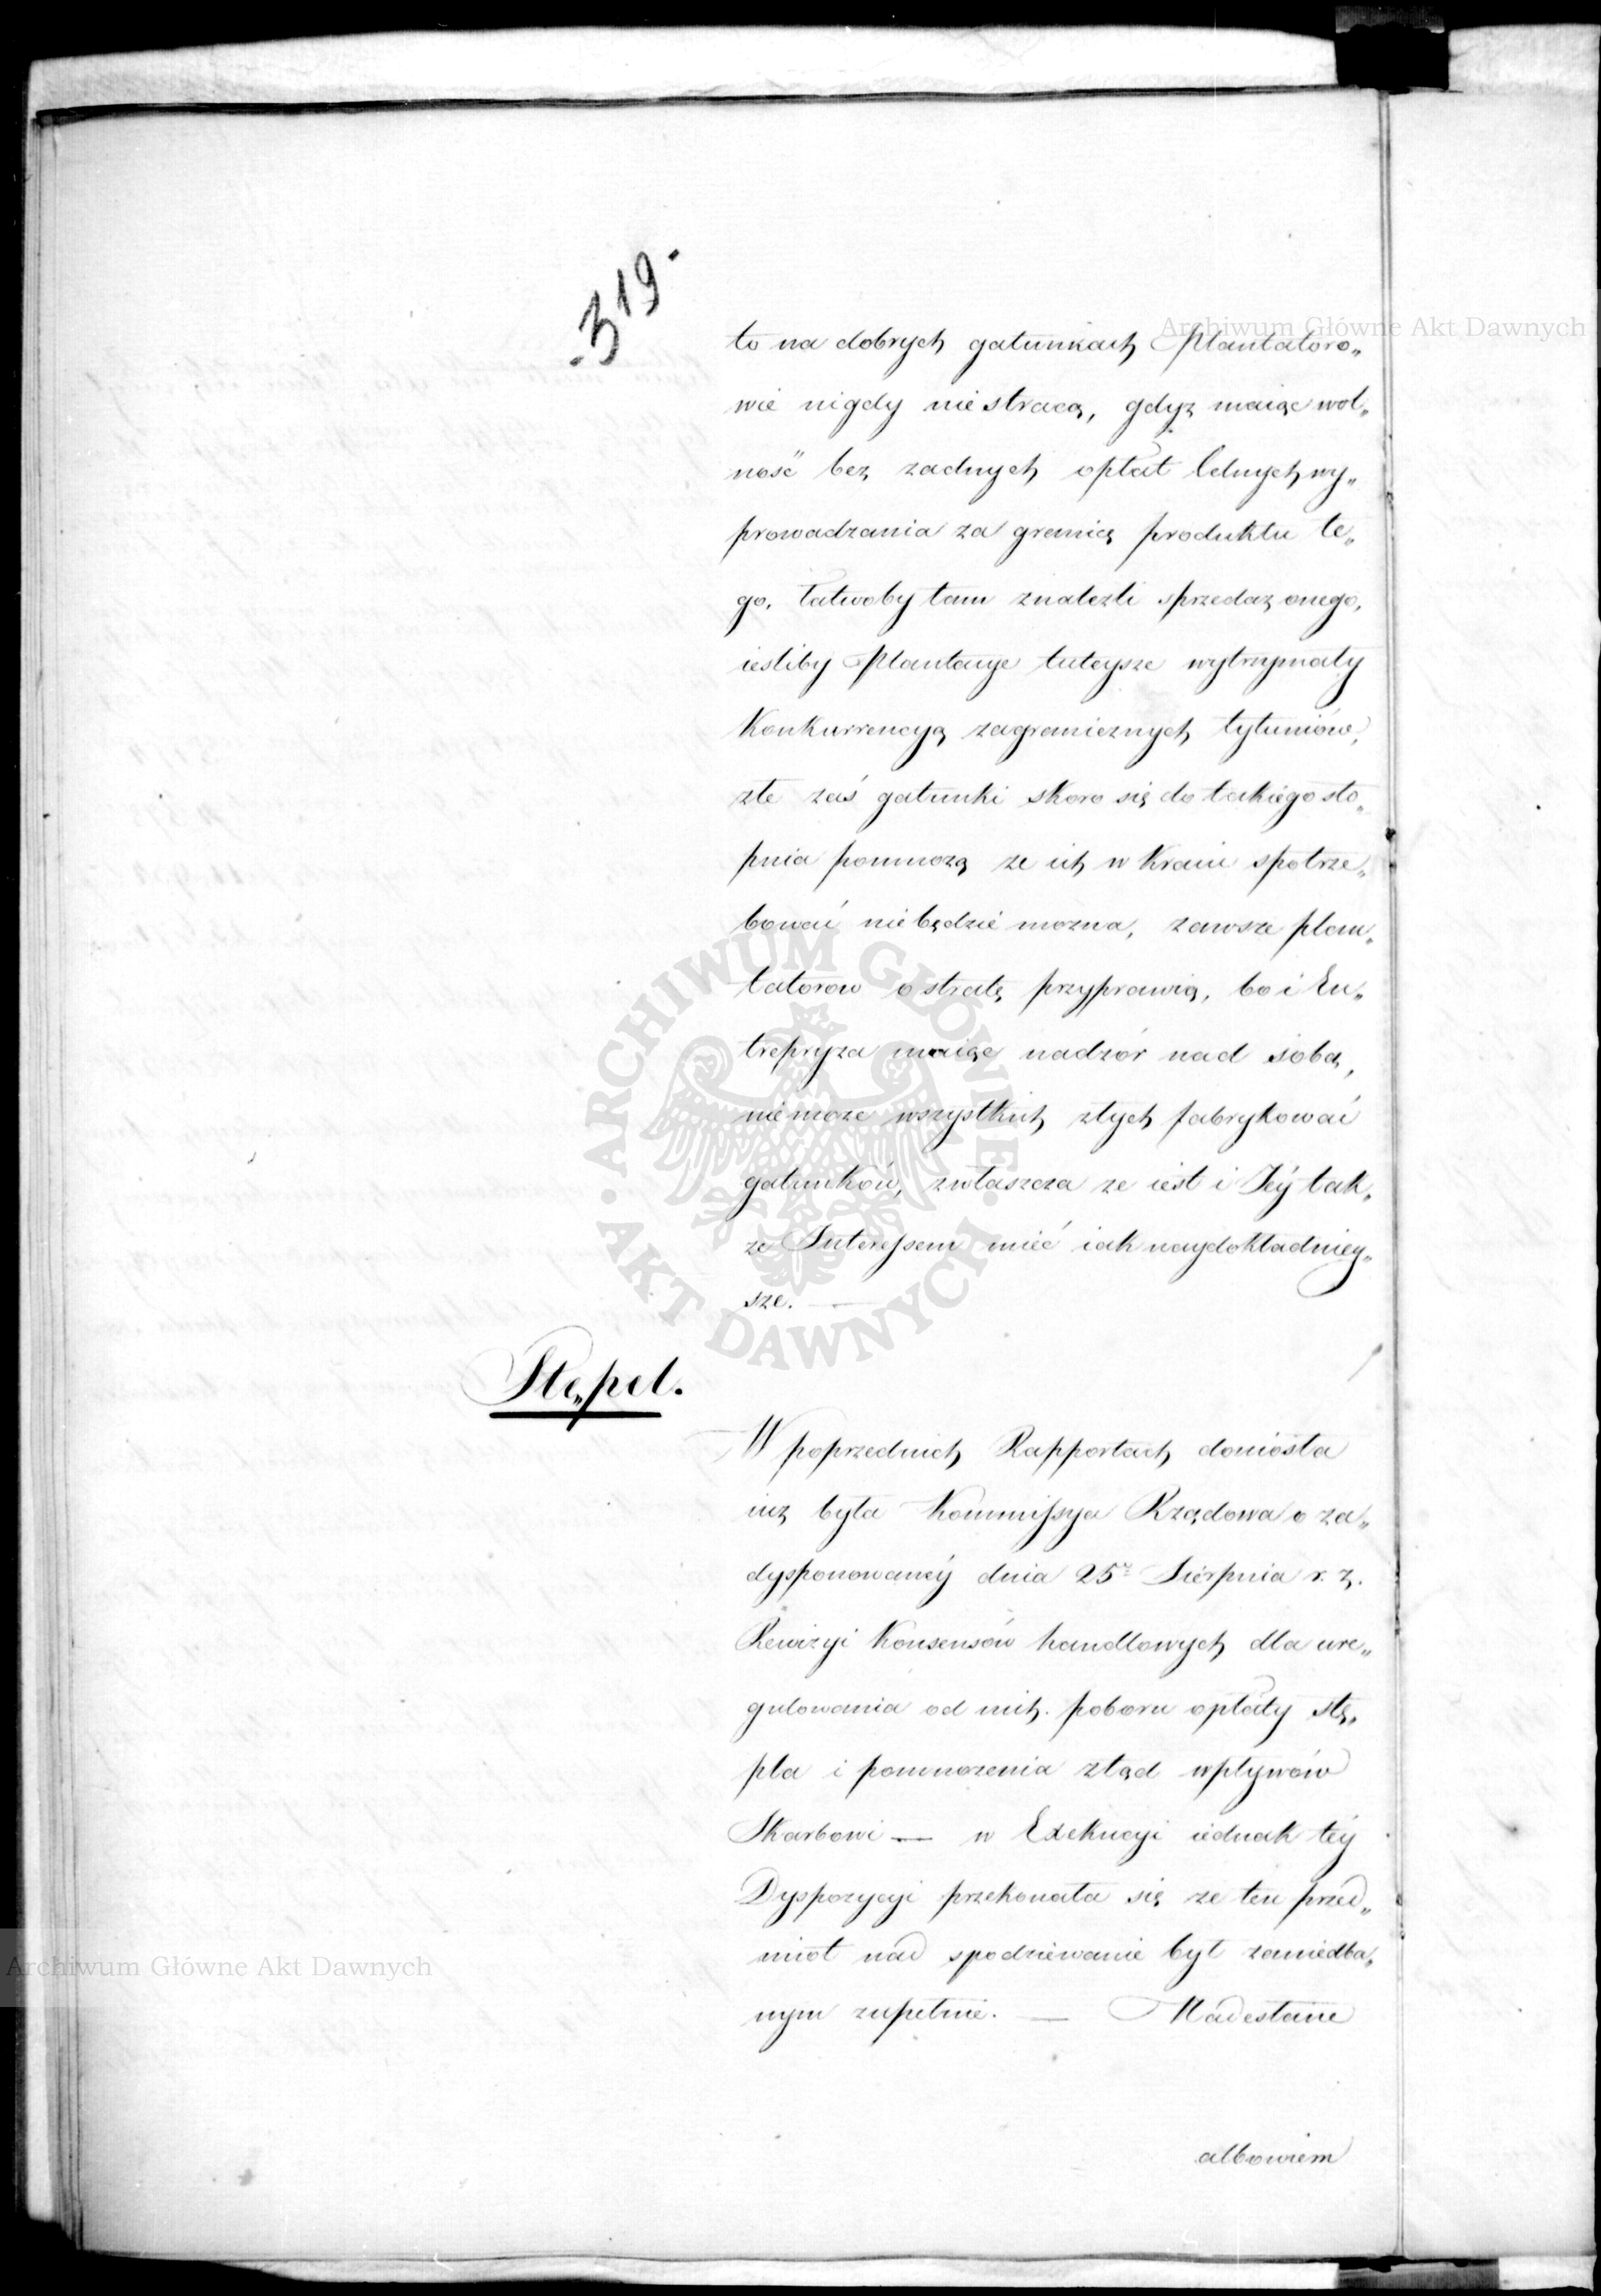 -319-
Archiwum Główne Akt Dawnych
to na dobrych gatunkach Plantatoro„
wie nigdy nie stracą, gdyż maiąc wol„
ność bez żadnych opłat Celnych wy„
prowadzania za granicę produktu te„
go, łatwoby tam znaleźli sprzedaż onego,
iesliby Plantacye tuteysze wytrzymały
Konkurrencyą zagranicznych tytuniów,
złe zaś gatunki skoro się do takiego sto„
pnia pomnożą że ich w Kraiu spotrze„
bować niebędzie można, zawsze plan„
tatorow o stratę przyprawią, bo i En„
trepryza maiąc nadzór nad sobą,
niemoże wszystkich złych fabrykować
gatunków, zwłaszcza że iest i Jéy tak„
że Interessem mieć iak naydokładniey„
sze. —
ARCHIWUM GŁÓWNE AKT DAWNYCH
Stępel.
W poprzednich Rapportach doniosła
iuż była Kommissya Rządowa o za„
dysponowanéy dnia 25º Sierpnia r. z.
Rewizyi Konsensów handlowych dla ure„
gulowania od nich poboru opłaty stę„
pla i pomnożenia ztąd wpływów
Skarbowi — w Exekucyi iednak téy
Dyspozycyi przekonała się że ten przed„
miot nad spodziewanie był zaniedba„
nym zupełnie. — Nadesłane
albowiem
Archiwum Główne Akt Dawnych